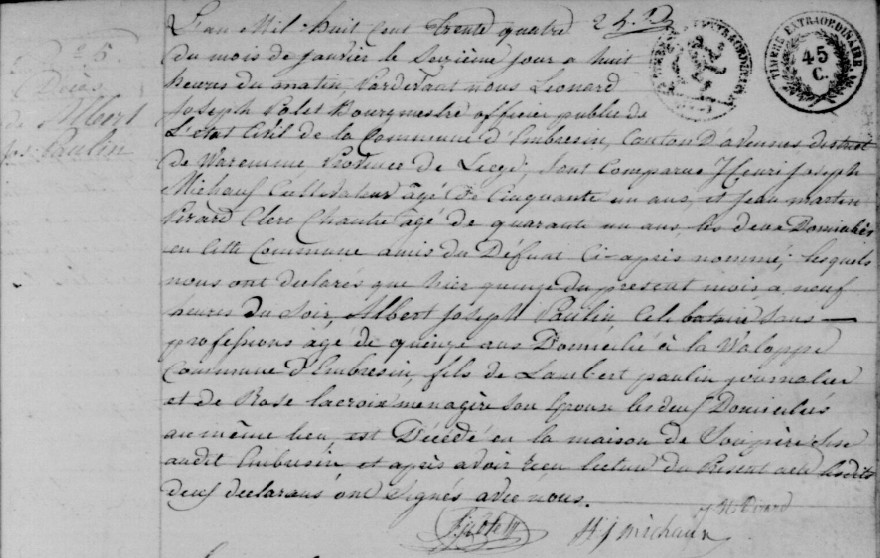 L'an Mil huit cent trente quatre
du mois de janvier le Seizième jour a huit
heures du matin, Pardevant nous Léonard
Joseph Polet Bourgmestre officier public de
L'état Civil de la Commune d'Embresin, Canton D'avennes district
de Waremme, Province de Liege, Sont Comparus Henri joseph
Michaux Cultivateur âgé de Cinquante un ans, et jean martin
Pirard Clerc Chantre agé de quarante un ans, les deux Domiciliés
en Cette Commune amis du Défunt Ci-après nommé; lesquels
nous ont declarés que hier quinze du present mois a neuf
heures du Soir, Albert joseph Paulin Celibataire Sans
professions âgé de quinze ans Domicilié à la Waloppe
Commune d'Embresin, fils de Lambert paulin journalier
et de Rose lacroix menagère Son Epoux les deux Domiciliés
au même lieu, est Décédé en la maison de Son père Sise
audit Embresin et après avoir lecture du Present acte lesdits
deux declarans ont Signés avec nous.
H J michaux
Pirard
25
Décès
de Albert
jos. Paulin
TIMBRE EXTRAORDINAIRE
45
C.